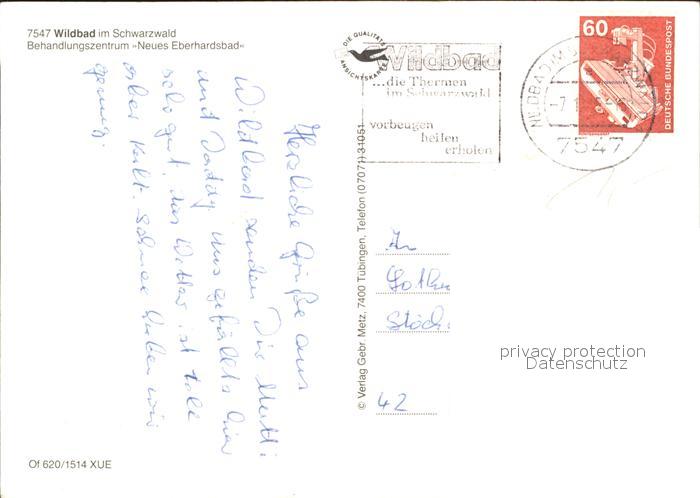 7547 Wildbad im Schwarzwald
Behandlungszentrum »Neues Eberhardsbad«
Herzliche Grüße aus
Wildbad senden Dir Mutti
und Daddy. Uns gefällts hier
sehr gut, das Wetter ist toll
aber kalt. Schnee haben wir
genug.
Of 620/1514 XUE
© Verlag Gebr. Metz, 7400 Tübingen, Telefon (07071) 31051
DIE QUALITÄTS
ANSICHTSKARTE
Wildbad
...die Thermen
im Schwarzwald
vorbeugen
heilen
erholen
7547
60
DEUTSCHE BUNDESPOST
An
Stöck
42
privacy protection
Datenschutz